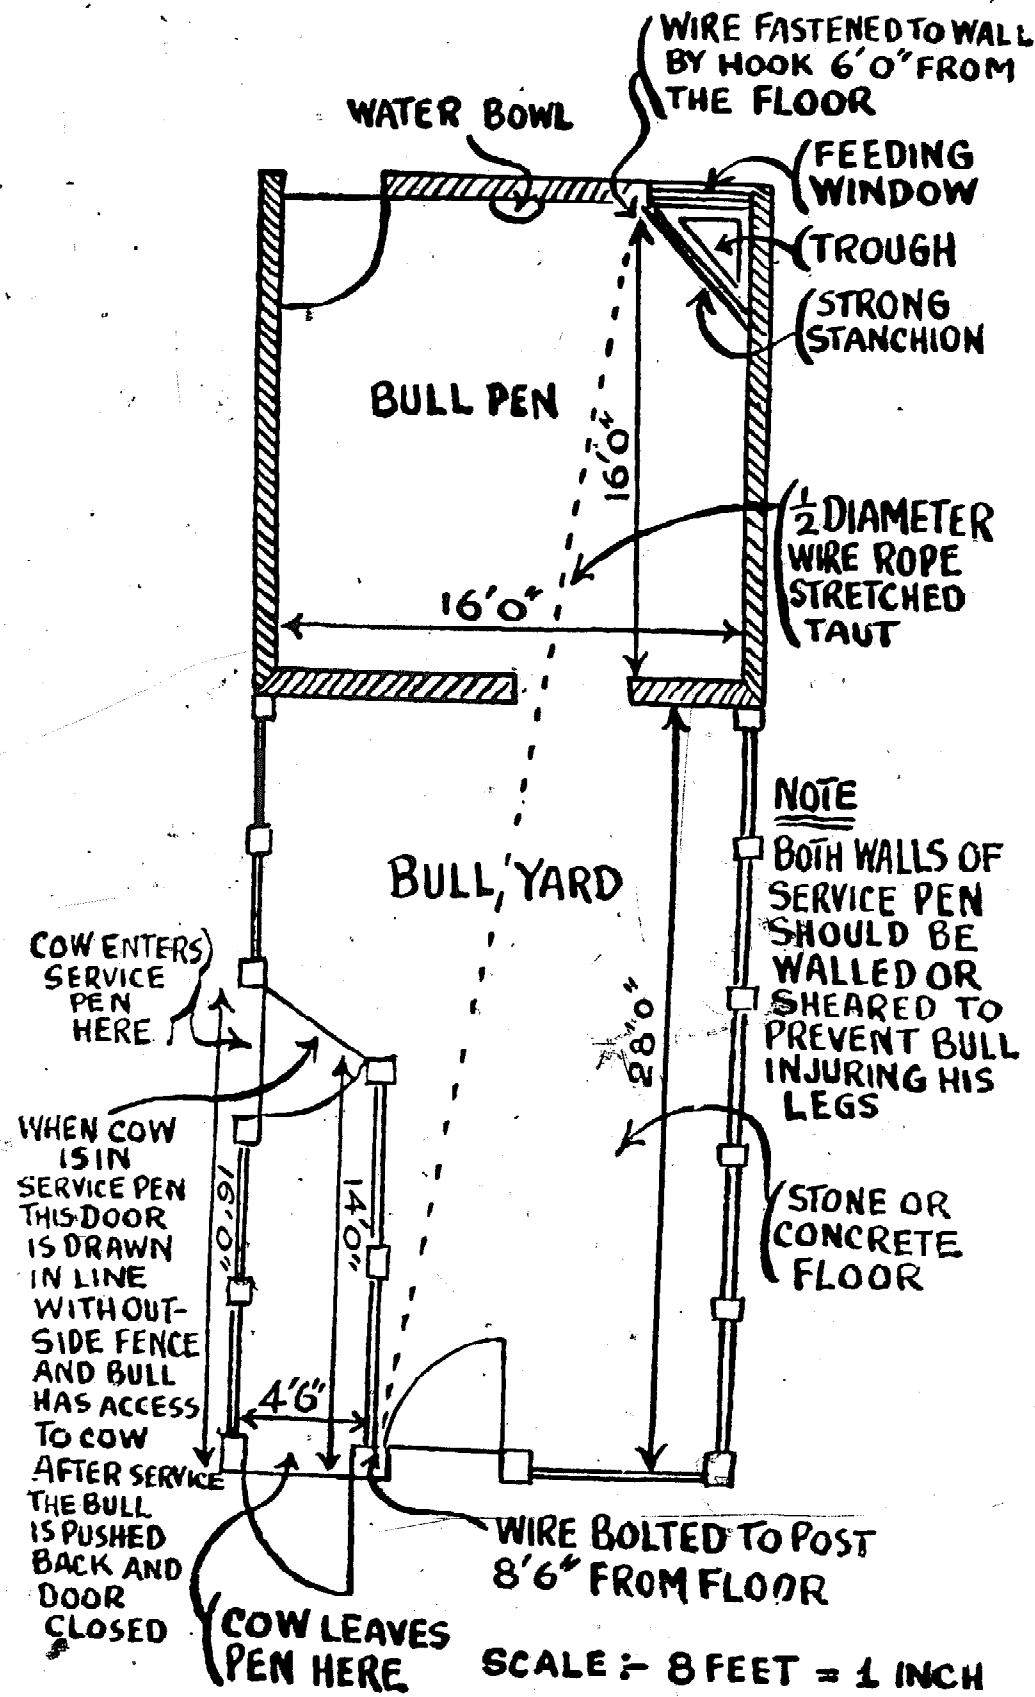 WIRE FASTENED TO WALL
BY HOOK 6'0" FROM
THE FLOOR
WATER BOWL
FEEDING
WINDOW
TROUGH
STRONG
STANCHION
BULL PEN
16'0"
½ DIAMETER
WIRE ROPE
STRETCHED
TAUT
16'0"
NOTE
BOTH WALLS OF
SERVICE PEN
SHOULD BE
WALLED OR
SHEARED TO
PREVENT BULL
INJURING HIS
LEGS
BULL YARD
COW ENTERS
SERVICE
PEN
HERE
28'0"
WHEN COW
IS IN
SERVICE PEN
THIS DOOR
IS DRAWN
IN LINE
WITH OUT-
SIDE FENCE
AND BULL
HAS ACCESS
TO COW
AFTER SERVICE
THE BULL
IS PUSHED
BACK AND
DOOR
CLOSED
16'0"
14'0"
STONE OR
CONCRETE
FLOOR
4'6"
WIRE BOLTED TO POST
8'6" FROM FLOOR
COW LEAVES
PEN HERE
SCALE :- 8 FEET = 1 INCH